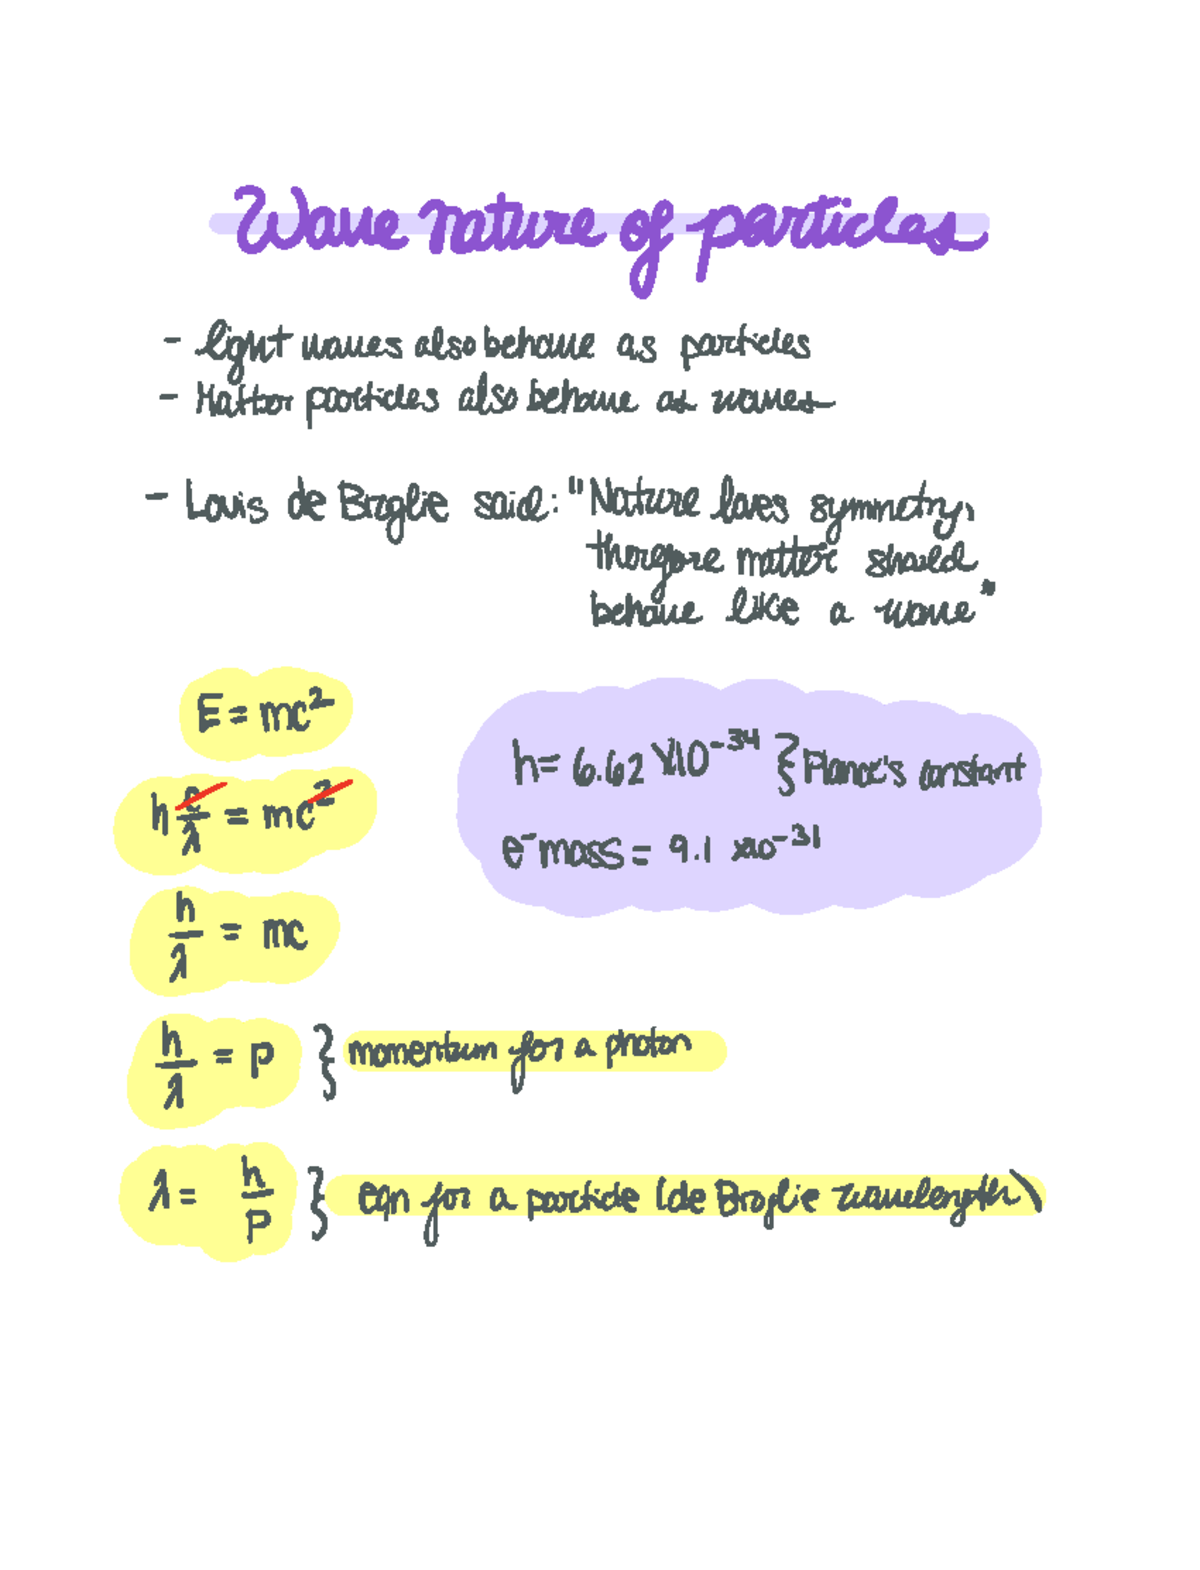 Wave nature of particles
- light waves also behave as particles
- Matter particles also behave as waves
- Louis de Broglie said: "Nature loves symmetry,
therefore matter should
behave like a wave"
E = mc²
h c/λ = mc²
h/λ = mc
h/λ = p } momentum for a photon
λ = h/p } eqn for a particle (de Broglie wavelength)
h = 6.62 x10⁻³⁴ } Planck's constant
e⁻ mass = 9.1 x10⁻³¹